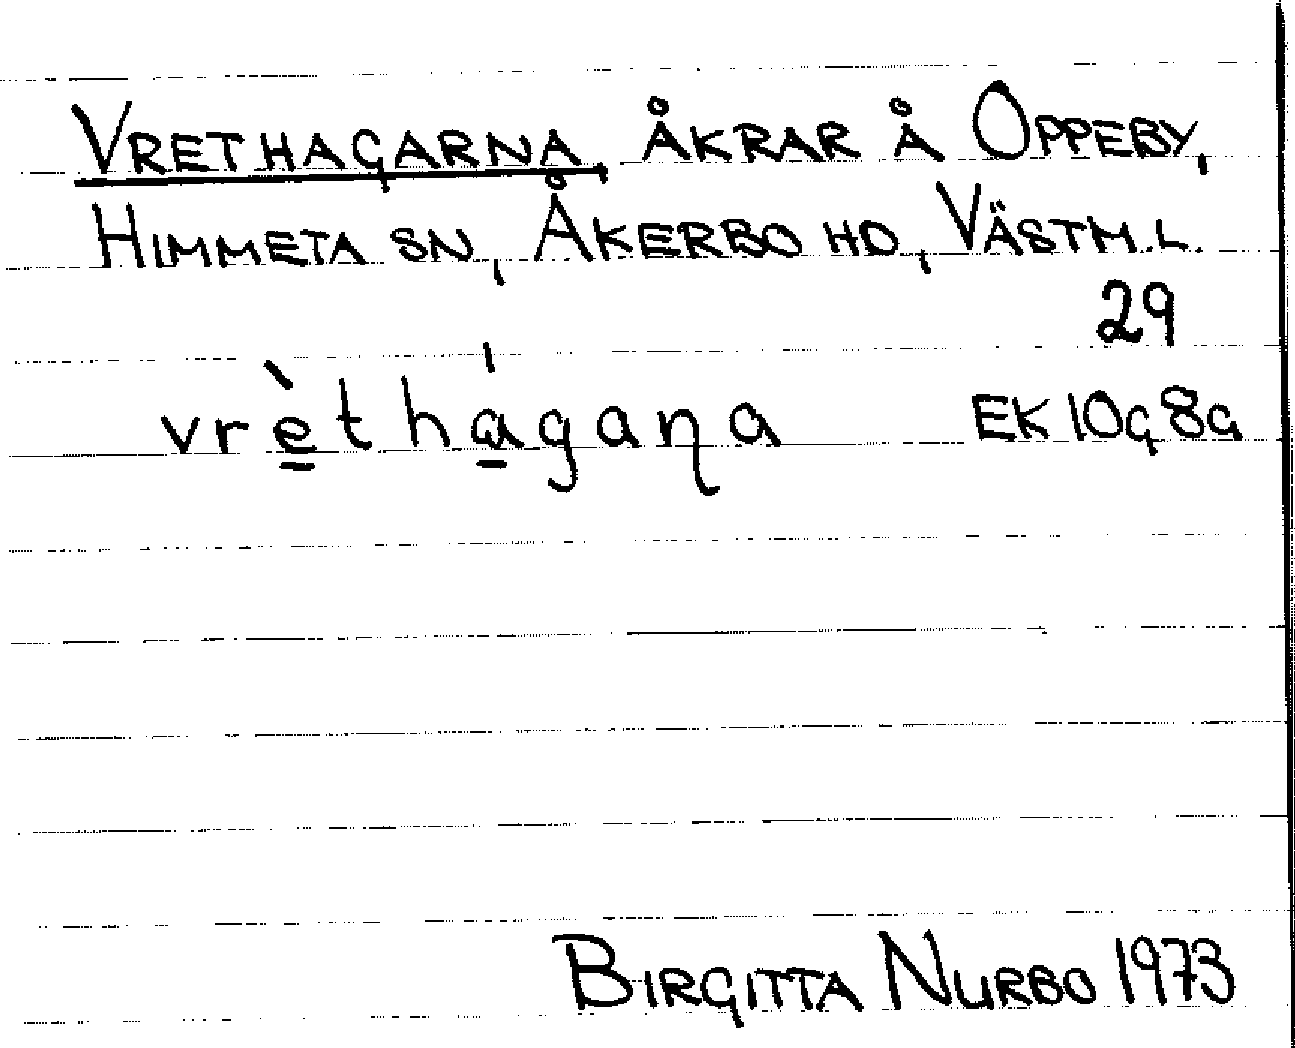 VRETHAGARNA, ÅKRAR Å OPPEBY,
HIMMETA SN, ÅKERBO HD, VÄSTM.L.
29
vrèt hágaṇa EK 10G 8g
BIRGITTA NURBO 1973